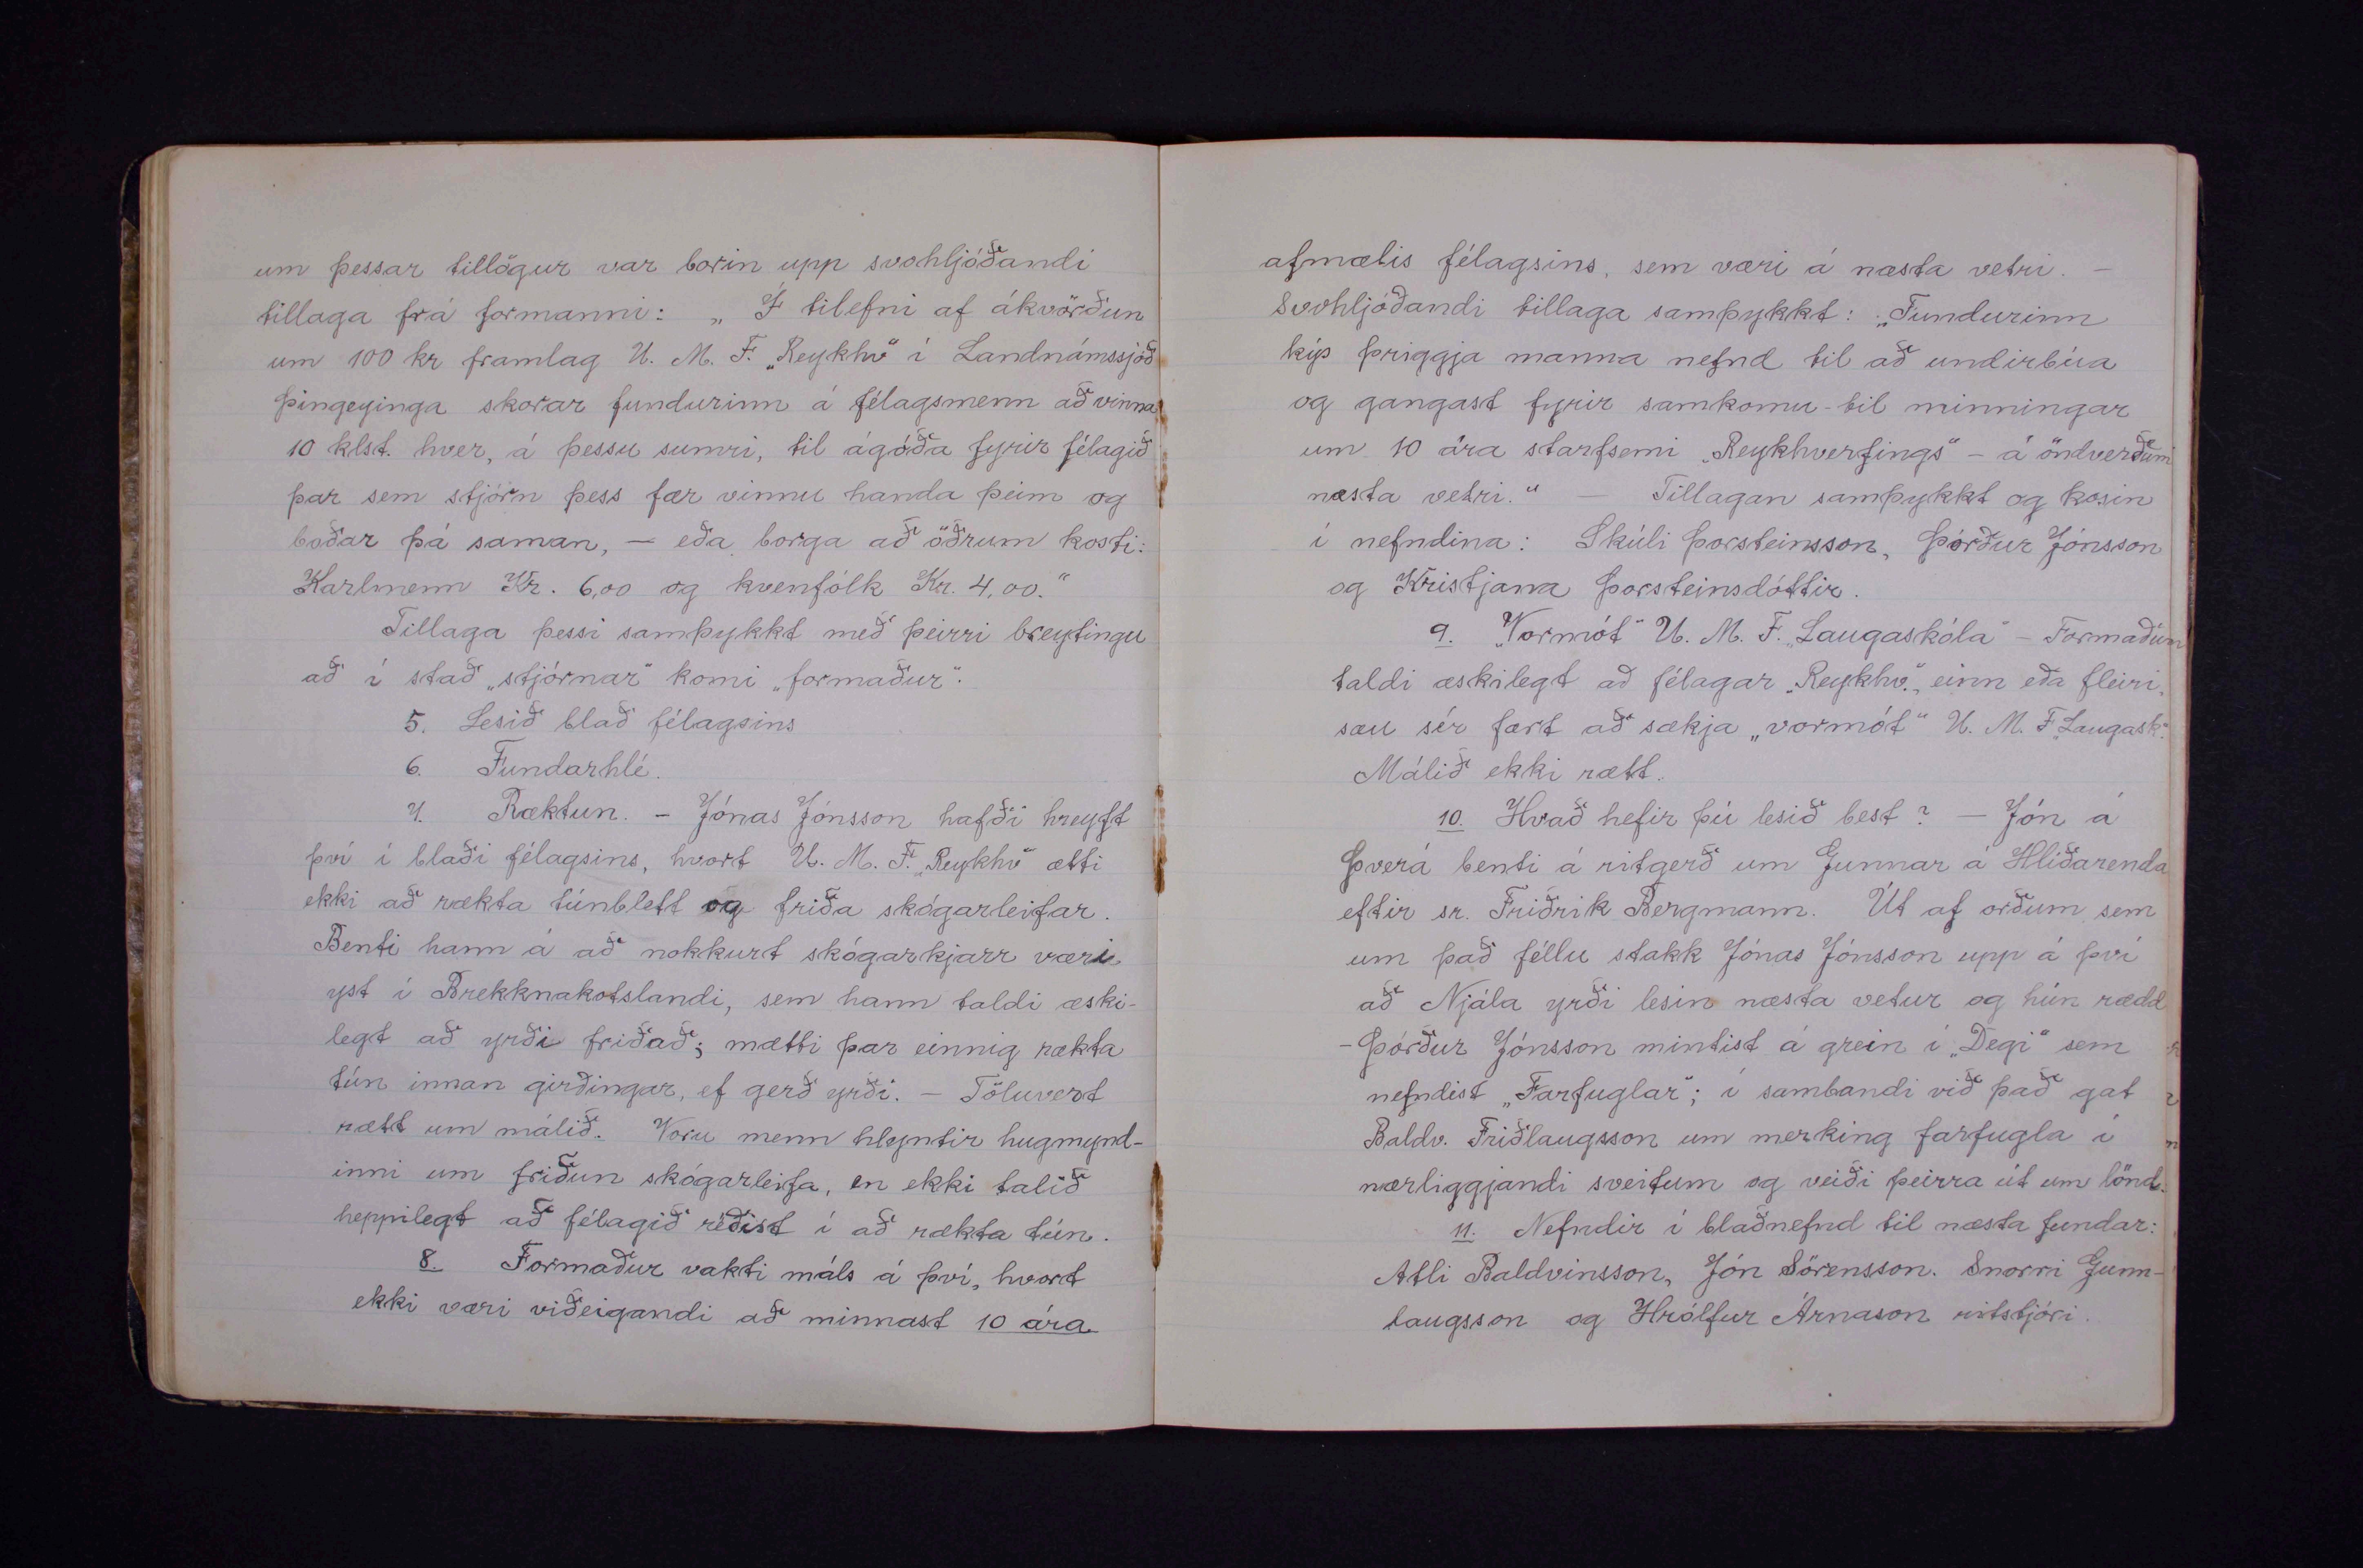 um þessar tillögur var borin upp svohljóðandi
tillaga frá formanni: „Í tilefni af ákvörðun
um 100 kr framlag U. M. F. „Reykhv“ í Landnámssjóð
Þingeyinga skorar fundurinn á félagsmenn að vinna
10 klst. hver, á þessu sumri, til ágóða fyrir félagið
þar sem stjórn þess fær vinnu handa þeim og
boðar þá saman, — eða borga að öðrum kosti:
Karlmenn Kr. 6,00 og kvenfólk Kr. 4,00.“
Tillaga þessi samþykkt með þeirri breytingu
að í stað „stjórnar“ komi „formaður“.
5. Lesið blað félagsins
6. Fundarhlé.
7. Ræktun. - Jónas Jónsson hafði hreyft
því í blaði félagsins, hvort U. M. F. „Reykhv“ ætti
ekki að rækta túnblett og friða skógarleifar.
Benti hann á að nokkurt skógarkjarr væri
yst í Brekknakotslandi, sem hann taldi æski-
legt að yrði friðað; mætti þar einnig rækta
tún innan girðingar, ef gerð yrði. - Töluvert
rætt um málið. Voru menn hlyntir hugmynd-
inni um friðun skógarleifa, en ekki talið
heppilegt að félagið réðist í að rækta tún.
8. Formaður vakti máls á því, hvort
ekki væri viðeigandi að minnast 10 ára
afmælis félagsins, sem væri á næsta vetri. -
Svohljóðandi tillaga samþykkt: „Fundurinn
kýs þriggja manna nefnd til að undirbúa
og gangast fyrir samkomu - til minningar
um 10 ára starfsemi „Reykhverfings“ - á öndverðum
næsta vetri.“ — Tillagan samþykkt og kosin
í nefndina: Skúli Þorsteinsson, Þórður Jónsson
og Kristjana Þorsteinsdóttir.
9. „Vormót“ U. M. F. „Laugaskóla“ - Formaður
taldi æskilegt að félagar „Reykhv.“, einn eða fleiri,
sæu sér fært að sækja „vormót“ U. M. F „Laugask.“
Málið ekki rætt.
10. Hvað hefir þú lesið best? — Jón á
Þverá benti á ritgerð um Gunnar á Hlíðarenda
eftir sr. Friðrik Bergmann. Út af orðum sem
um það féllu stakk Jónas Jónsson upp á því
að Njála yrði lesin næsta vetur og hún rædd
- Þórður Jónsson mintist á grein í „Degi“ sem
nefndist „Farfuglar“; í sambandi við það gat
Baldv. Friðlaugsson um merking farfugla í
nærliggjandi sveitum og veiði þeirra út um lönd.
11. Nefndir í blaðnefnd til næsta fundar:
Atli Baldvinsson, Jón Sörensson. Snorri Gunn-
laugsson og Hrólfur Árnason ritstjóri.